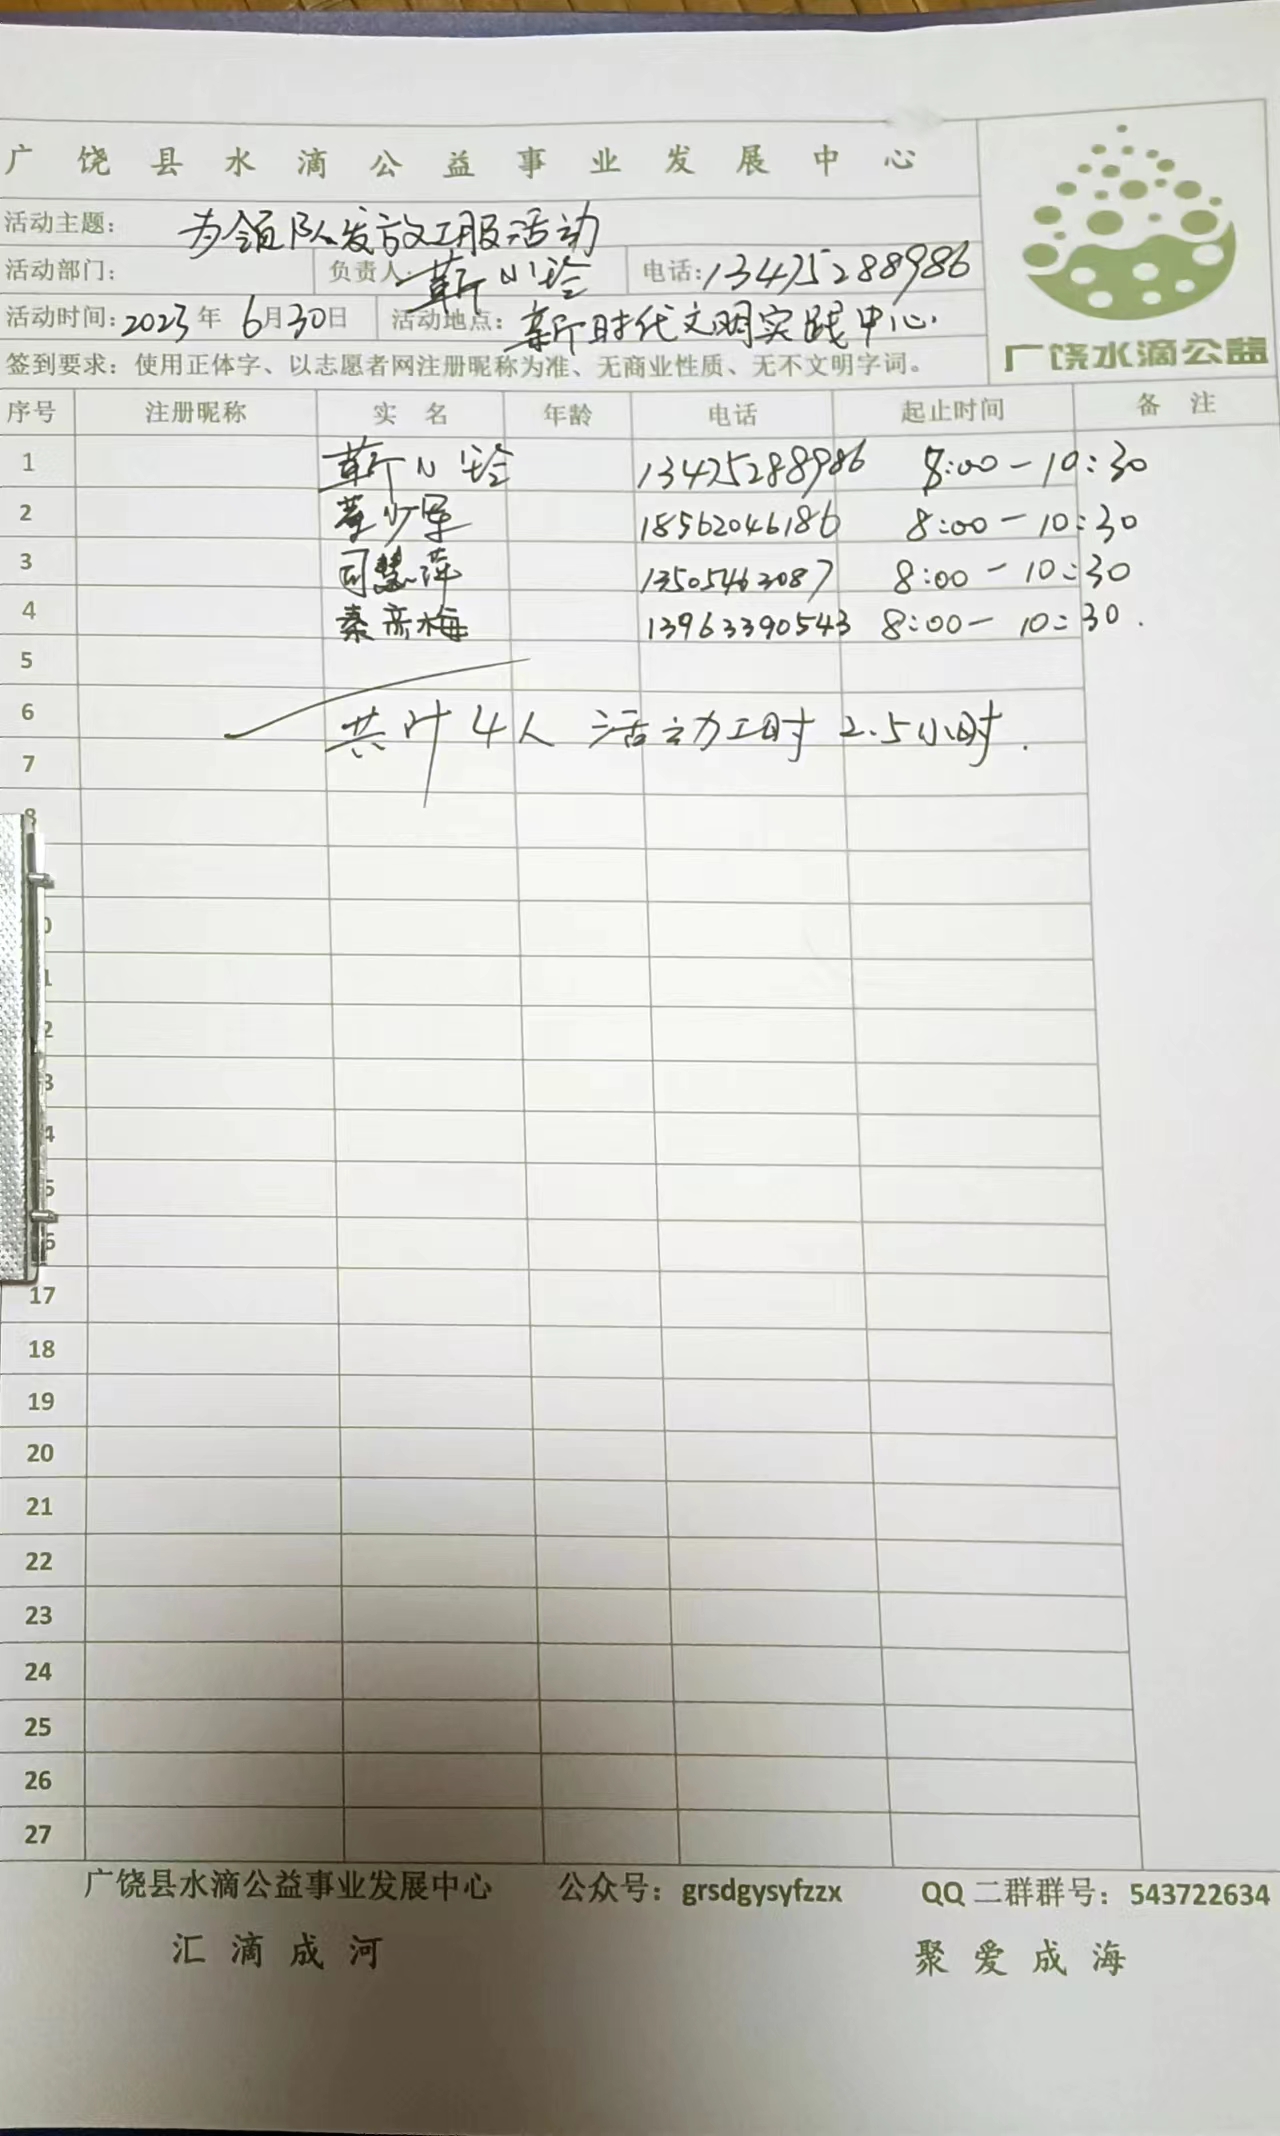 广饶县水滴公益事业发展中心
活动主题： 为领队发放工服活动
活动部门： 负责人: 靳小玲 电话: 13475288986
活动时间: 2023年 6月30日 活动地点: 新时代文明实践中心.
签到要求：使用正体字、以志愿者网注册昵称为准、无商业性质、无不文明字词。
广饶水滴公益
序号 注册昵称 实 名 年龄 电话 起止时间 备 注
1 靳小玲 13475288986 8:00-10:30
2 董少军 18562046186 8:00-10:30
3 司慧萍 13505463087 8:00-10:30
4 秦彦梅 13963390543 8:00-10:30.
5
6 共计4人 活动工时2.5小时.
7
8
17
18
19
20
21
22
23
24
25
26
27
广饶县水滴公益事业发展中心 公众号：grsdgysyfzzx QQ二群群号：543722634
汇滴成河 聚爱成海